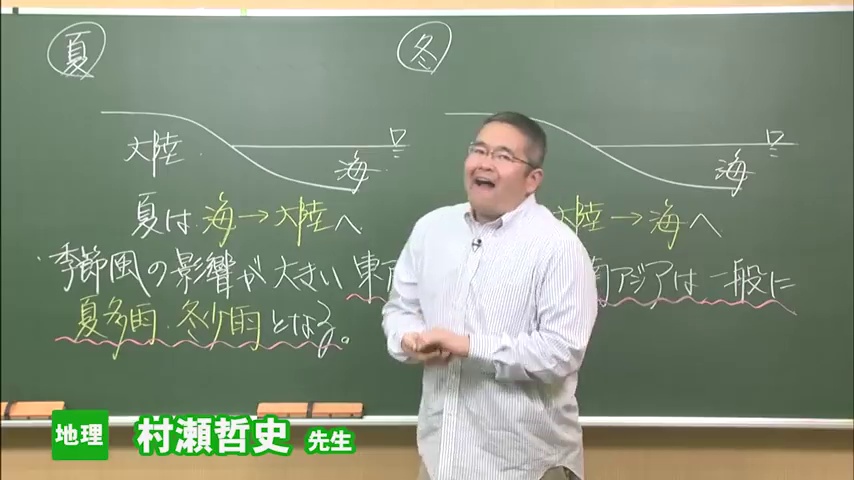 夏
冬
大陸
海
海
夏は海→大陸へ
大陸→海へ
季節風の影響が大きい東
南アジアは一般に
夏多雨・冬少雨となる。
地理 村瀬哲史 先生